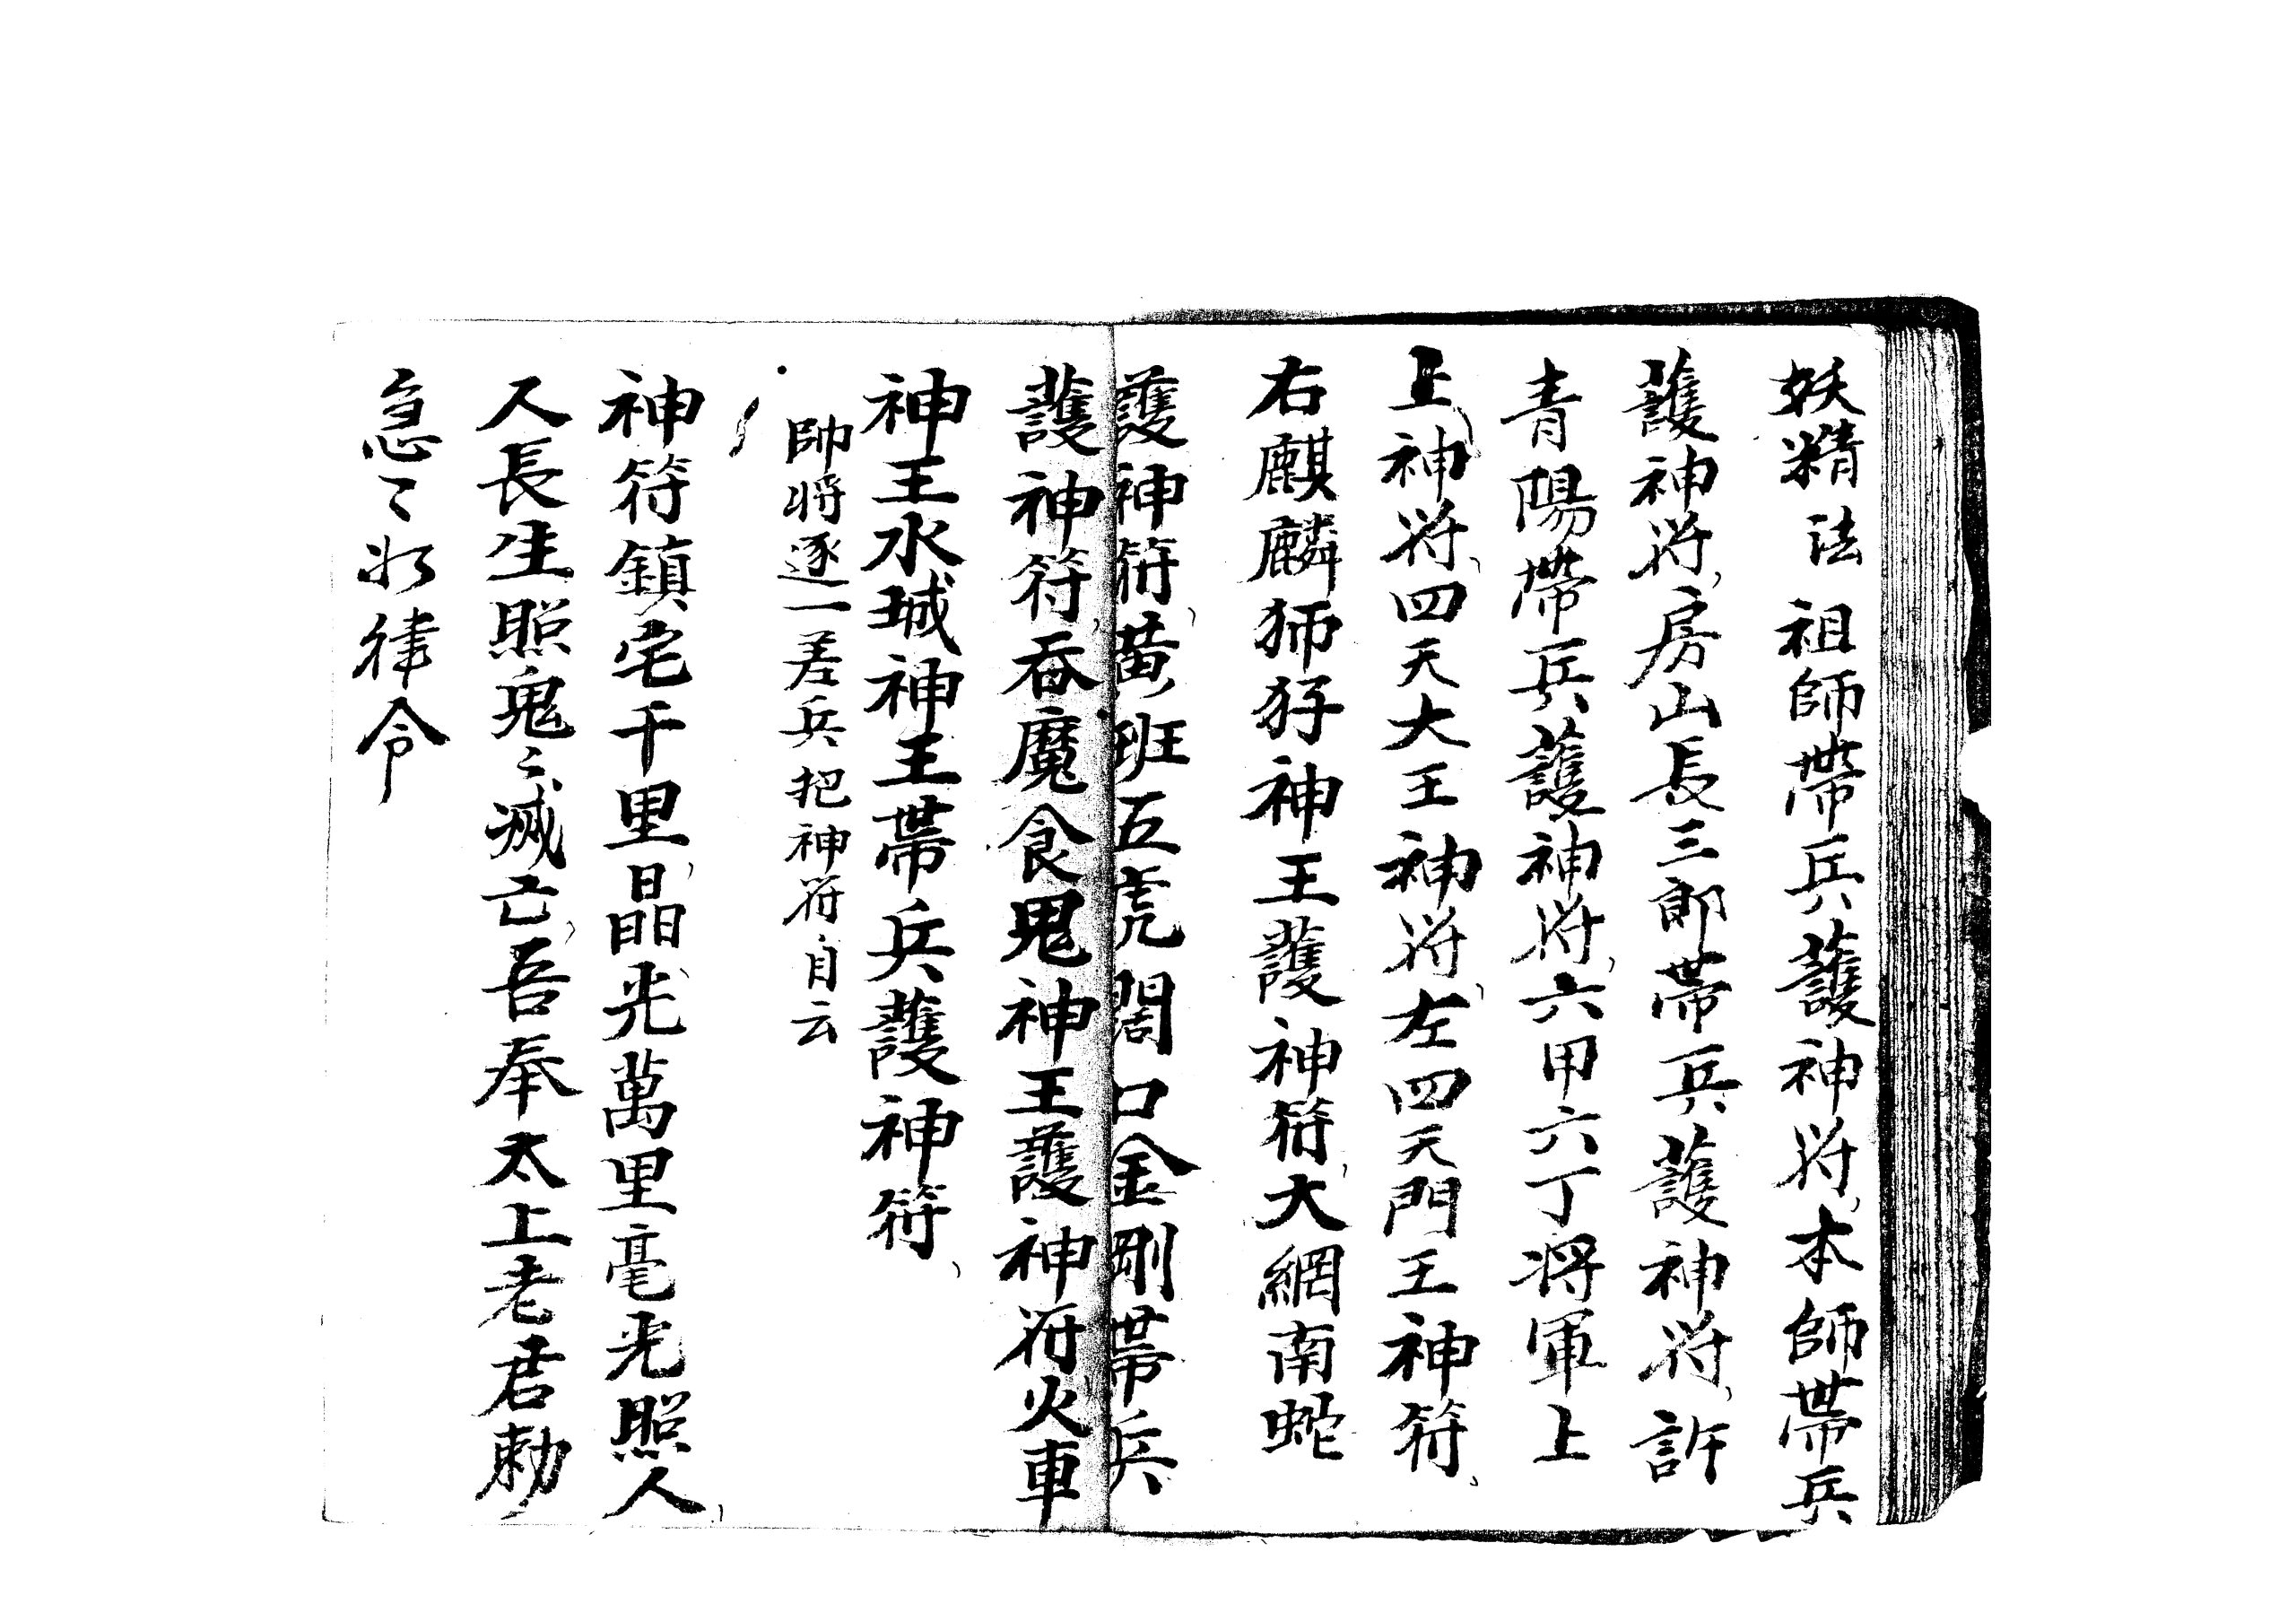 妖精法 祖師帶兵護神将、本師帶兵
護神将、房山長三郎帶兵護神将、許
青陽帶兵護神将、六甲六丁将軍上
上神将、四天大王神将、左四天門王神符、
右麒麟狮狩神王護神符、大網南蛇
護神符、黄班五虎闊口金剛帶兵
護神符、吞魔食鬼神王護神符火車
神王水城神王帶兵護神符、
帥将逐一差兵把神符自云
神符鎮宅千里、晶光萬里毫光照人、
人長生照鬼〻滅亡、吾奉太上老君勅
急〻如律令